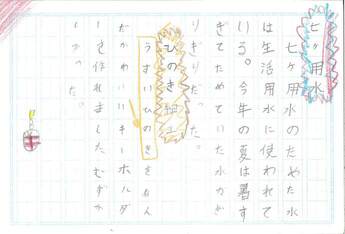 七ヶ用水
七ヶ用水のためた水
は生活用水に使われて
いる。今年の夏は暑す
ぎてためていた水がぎ
りぎりだった。
ひのき細工
うすいひのきをあん
だかわいいキーホルダ
ーを作れました。むずか
しかった。